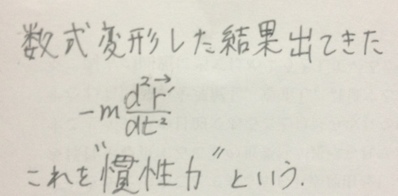 数式変形した結果出てきた
-m d²r⃗'/dt²
これを"慣性力"という.